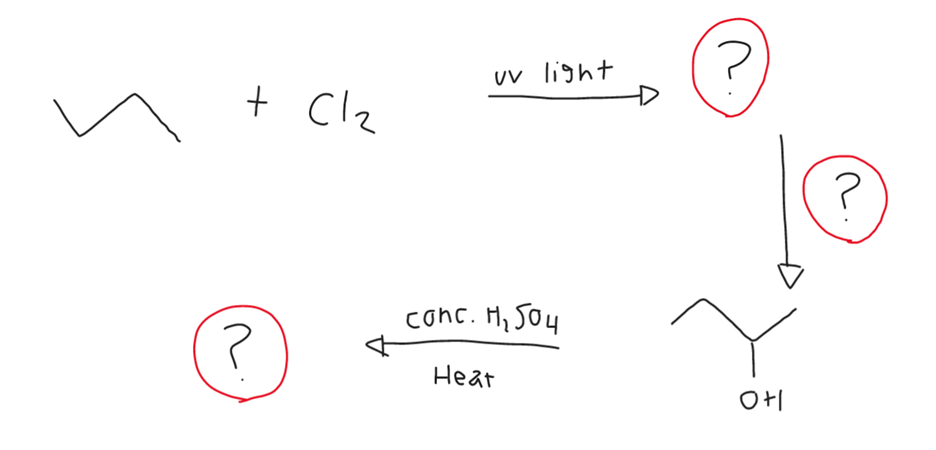 + Cl₂
uv light
?
?
OH
conc. H₂SO₄
Heat
?